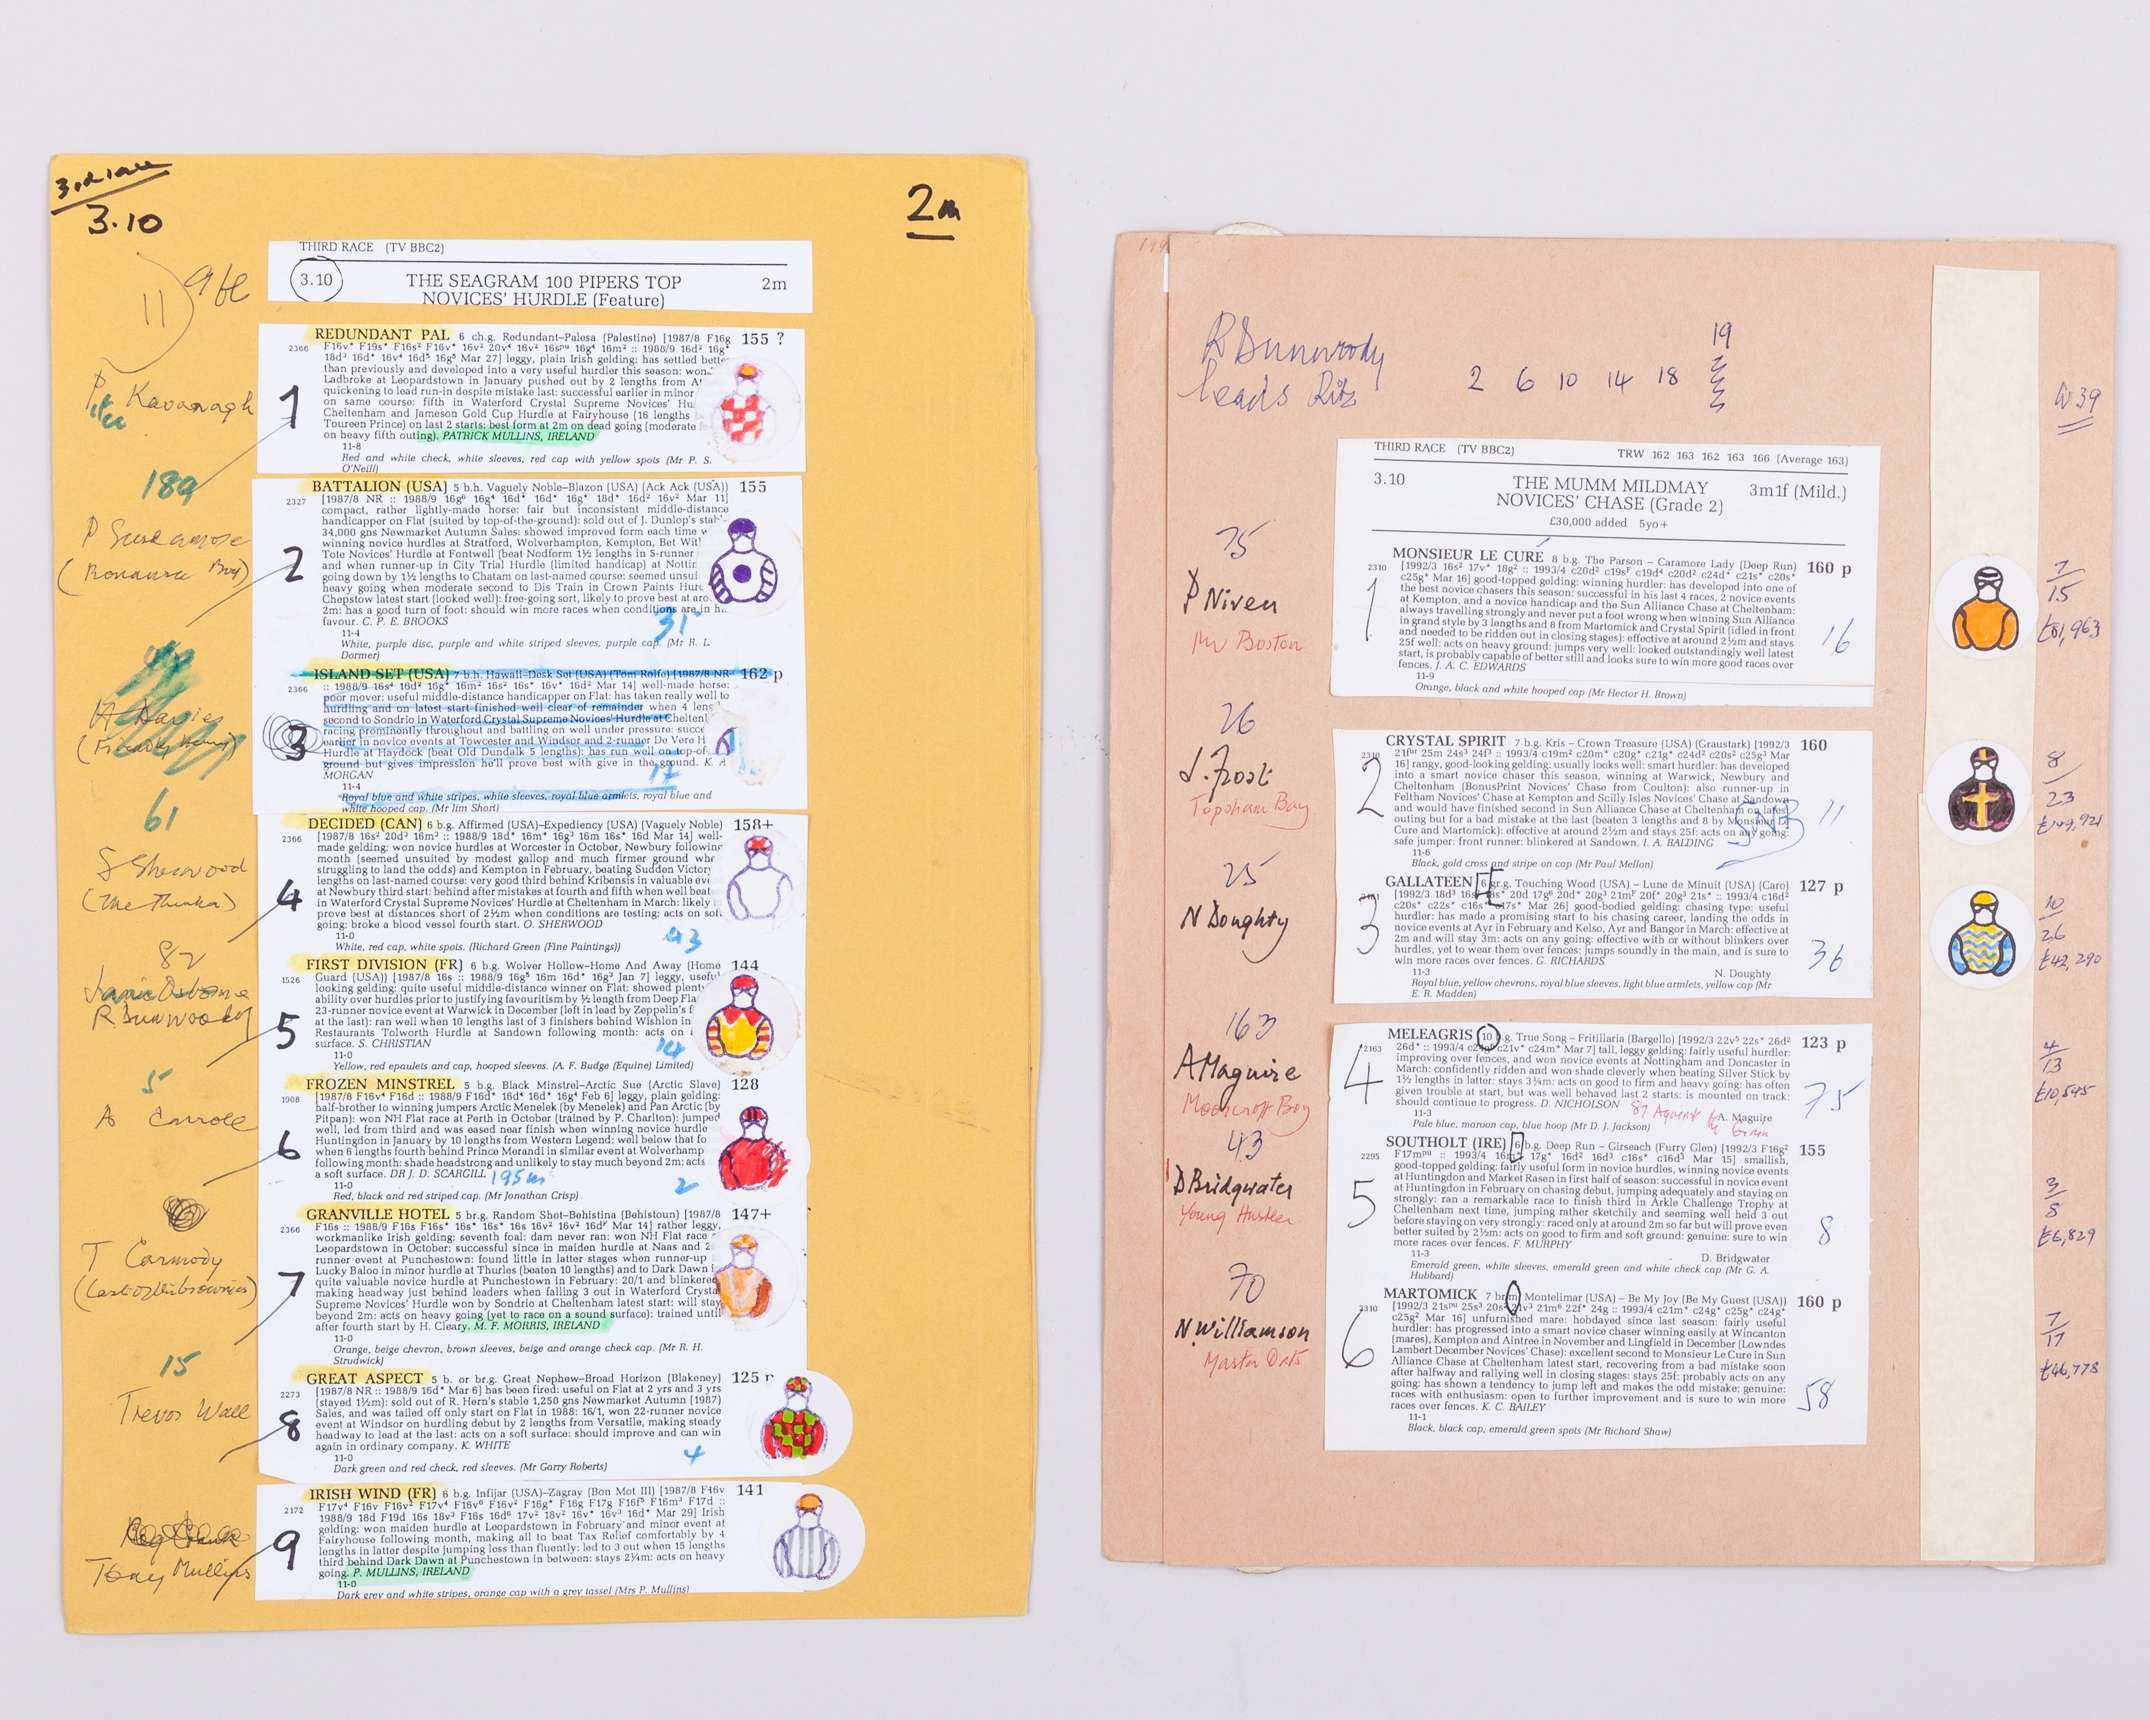 3.10
2m
THIRD RACE (TV BBC2)
3.10
THE SEAGRAM 100 PIPERS TOP
2m
NOVICES' HURDLE (Feature)
11
Kavanagh
1
189
REDUNDANT PAL 6 ch.g. Redundant–Palesa (Palestine) [1987/8 F16g
155 ?
2366
18d³ 16d* 16v⁴ 16d⁵ 16g⁵ Mar 27] leggy, plain Irish gelding: has settled bette
than previously and developed into a very useful hurdler this season: won
Ladbroke at Leopardstown in January pushed out by 2 lengths from
quickening to lead run-in despite mistake last: successful earlier in minor
on same course: fifth in Waterford Crystal Supreme Novices' Hu
Cheltenham and Jameson Gold Cup Hurdle at Fairyhouse (16 lengths
Toureen Prince) on last 2 starts: best form at 2m on dead going (moderate
on heavy fifth outing). PATRICK MULLINS, IRELAND
11-8
Red and white check, white sleeves, red cap with yellow spots (Mr P. S.
O'Neill)
2
BATTALION (USA) 5 b.h. Vaguely Noble–Blazon (USA) (Ack Ack (USA))
155
2327
[1987/8 NR :: 1988/9 16g⁶ 16g⁴ 16d* 16d* 16g* 18d* 16d² 16v² Mar 11]
compact, rather lightly-made horse: fair but inconsistent middle-distance
handicapper on Flat (suited by top-of-the-ground): sold out of J. Dunlop's stabl
34,000 gns Newmarket Autumn Sales: showed improved form each time w
winning novice hurdles at Stratford, Wolverhampton, Kempton, Bet Wit
Tote Novices' Hurdle at Fontwell (beat Nodform 1½ lengths in 5-runner
and when runner-up in City Trial Hurdle (limited handicap) at Nottin
going down by 1½ lengths to Chatam on last-named course: seemed unsui
heavy going when moderate second to Dis Train in Crown Paints Hur
Chepstow latest start (looked well): free-going sort, likely to prove best at aro
2m: has a good turn of foot: should win more races when conditions are in h
favour. C. P. E. BROOKS
31
11-4
White, purple disc, purple and white striped sleeves, purple cap. (Mr R. L.
Dormer)
3
61
ISLAND SET (USA) 7 b.h. Hawaii–Desk Set (USA) (Tom Rolfe) [1987/8 NR
162 p
2366
:: 1988/9 16s⁴ 16d² 16g* 16m² 16s² 16s* 16v* 16d² Mar 14] well-made horse:
poor mover: useful middle-distance handicapper on Flat: has taken really well to
hurdling and on latest start finished well clear of remainder when 4 leng
second to Sondrio in Waterford Crystal Supreme Novices' Hurdle at Chelten
racing prominently throughout and battling on well under pressure: succe
earlier in novice events at Towcester and Windsor and 2-runner De Vere H
Hurdle at Haydock (beat Old Dundalk 5 lengths): has run well on top-of
ground but gives impression he'll prove best with give in the ground. K. A
MORGAN
17
11-4
Royal blue and white stripes, white sleeves, royal blue armlets, royal blue and
white hooped cap. (Mr Jim Short)
S Sherwood
(The Thinker)
4
82
DECIDED (CAN) 6 b.g. Affirmed (USA)–Expediency (USA) (Vaguely Noble)
158+
2366
[1987/8 16s² 20d³ 16m³ :: 1988/9 18d* 16m* 16g³ 16m 16s* 16d Mar 14] well-
made gelding: won novice hurdles at Worcester in October, Newbury following
month (seemed unsuited by modest gallop and much firmer ground whe
struggling to land the odds) and Kempton in February, beating Sudden Victory
lengths on last-named course: very good third behind Kribensis in valuable eve
at Newbury third start: behind after mistakes at fourth and fifth when well beat
in Waterford Crystal Supreme Novices' Hurdle at Cheltenham in March: likely
prove best at distances short of 2½m when conditions are testing: acts on soft
going: broke a blood vessel fourth start. O. SHERWOOD
11-0
43
White, red cap, white spots. (Richard Green (Fine Paintings))
R Dunwoody
5
FIRST DIVISION (FR) 6 b.g. Wolver Hollow–Home And Away (Home
144
1526
Guard (USA)) [1987/8 16s :: 1988/9 16g⁵ 16m 16d* 16g³ Jan 7] leggy, useful
looking gelding: quite useful middle-distance winner on Flat: showed plenty
ability over hurdles prior to justifying favouritism by ½ length from Deep Fla
23-runner novice event at Warwick in December (left in lead by Zeppelin's f
at the last): ran well when 10 lengths last of 3 finishers behind Wishlon in
Restaurants Tolworth Hurdle at Sandown following month: acts on
surface. S. CHRISTIAN
14
11-0
Yellow, red epaulets and cap, hooped sleeves. (A. F. Budge (Equine) Limited)
5
A Carroll
6
FROZEN MINSTREL 5 b.g. Black Minstrel–Arctic Sue (Arctic Slave)
128
1908
[1987/8 F16v⁴ F16d :: 1988/9 F16d* 16d⁴ 16d* 16g⁴ Feb 6] leggy, plain gelding:
half-brother to winning jumpers Arctic Menelek (by Menelek) and Pan Arctic (by
Pitpan): won NH Flat race at Perth in October (trained by P. Charlton): jumped
well, led from third and was eased near finish when winning novice hurdle
Huntingdon in January by 10 lengths from Western Legend: well below that fo
when 6 lengths fourth behind Prince Merandi in similar event at Wolverhamp
following month: shade headstrong and unlikely to stay much beyond 2m: acts
a soft surface. DR J. D. SCARGILL 195m
11-0
2
Red, black and red striped cap. (Mr Jonathan Crisp)
T Carmody
7
15
GRANVILLE HOTEL 5 br.g. Random Shot–Behistina (Behistoun) [1987/8
147+
2366
F16s :: 1988/9 F16s F16s* 16s* 16s* 16s 16v² 16v² 16dF Mar 14] rather leggy,
workmanlike Irish gelding: seventh foal: dam never ran: won NH Flat race
Leopardstown in October: successful since in maiden hurdle at Naas and
runner event at Punchestown: found little in latter stages when runner-up
Lucky Baloo in minor hurdle at Thurles (beaten 10 lengths) and to Dark Dawn
quite valuable novice hurdle at Punchestown in February: 20/1 and blinkered
making headway just behind leaders when falling 3 out in Waterford Crysta
Supreme Novices' Hurdle won by Sondrio at Cheltenham latest start: will stay
beyond 2m: acts on heavy going (yet to race on a sound surface): trained until
after fourth start by H. Cleary. M. F. MORRIS, IRELAND
11-0
Orange, beige chevron, brown sleeves, beige and orange check cap. (Mr R. H.
Strudwick)
Trevor Wall
8
GREAT ASPECT 5 b. or br.g. Great Nephew–Broad Horizon (Blakeney)
125
2273
[1987/8 NR :: 1988/9 16d* Mar 6] has been fired: useful on Flat at 2 yrs and 3 yrs
(stayed 1½m): sold out of R. Hern's stable 1,250 gns Newmarket Autumn [1987)
Sales, and was tailed off only start on Flat in 1988: 16/1, won 22-runner novice
event at Windsor on hurdling debut by 2 lengths from Versatile, making steady
headway to lead at the last: acts on a soft surface: should improve and can win
again in ordinary company. K. WHITE
11-0
4
Dark green and red check, red sleeves. (Mr Garry Roberts)
Tony Mullins
9
IRISH WIND (FR) 6 b.g. Infijar (USA)–Zagray (Bon Mot III) [1987/8 F16v
141
2172
1988/9 18d F19d 16s 18v³ F16s 16d⁶ 17v² 18v² 16v* 16v³ 16d* Mar 29] Irish
gelding: won maiden hurdle at Leopardstown in February and minor event at
Fairyhouse following month, making all to beat Tax Relief comfortably by 4
lengths in latter despite jumping less than fluently: led to 3 out when 15 lengths
third behind Dark Dawn at Punchestown in between: stays 2¼m: acts on heavy
going. P. MULLINS, IRELAND
11-0
Dark grey and white stripes, orange cap with a grey tassel (Mrs P. Mullins)
R Dunwoody
leads Ritz
2 6 10 14 18 19
39
THIRD RACE (TV BBC2)
TRW 162 163 162 163 166 (Average 163)
3.10
THE MUMM MILDMAY
3m1f (Mild.)
NOVICES' CHASE (Grade 2)
£30,000 added 5yo+
75
P Niven
Mr Boston
1
MONSIEUR LE CURÉ 8 b.g. The Parson – Caramore Lady (Deep Run)
160 p
2310
[1992/3 16s² 17v* 18g² :: 1993/4 c20d² c19sF c19d⁴ c20d² c24d* c21s* c20s*
c25g* Mar 16] good-topped gelding: winning hurdler: has developed into one of
the best novice chasers this season: successful in his last 4 races, 2 novice events
at Kempton, and a novice handicap and the Sun Alliance Chase at Cheltenham:
always travelling strongly and never put a foot wrong when winning Sun Alliance
in grand style by 3 lengths and 8 from Martomick and Crystal Spirit (idled in front
and needed to be ridden out in closing stages): effective at around 2½m and stays
25f well: acts on heavy ground: jumps very well: looked outstandingly well latest
start, is probably capable of better still and looks sure to win more good races over
fences. J. A. C. EDWARDS
16
11-9
Orange, black and white hooped cap (Mr Hector H. Brown)
7
15
£81,963
26
J. Frost
Topsham Bay
2
CRYSTAL SPIRIT 7 b.g. Kris – Crown Treasure (USA) (Graustark) [1992/3
160
2310
16] rangy, good-looking gelding: usually looks well: smart hurdler: has developed
into a smart novice chaser this season, winning at Warwick, Newbury and
Cheltenham (BonusPrint Novices' Chase from Coulton): also runner-up in
Feltham Novices' Chase at Kempton and Scilly Isles Novices' Chase at Sandown
and would have finished second in Sun Alliance Chase at Cheltenham on latest
outing but for a bad mistake at the last (beaten 3 lengths and 8 by Monsieur Le
Cure and Martomick): effective at around 2½m and stays 25f: acts on any going:
safe jumper: front runner: blinkered at Sandown. I. A. BALDING
11
11-6
Black, gold cross and stripe on cap (Mr Paul Mellon)
8
23
£149,921
25
N Doughty
3
GALLATEEN 6 gr.g. Touching Wood (USA) – Lune de Minuit (USA) (Caro)
127 p
c20s* c22s* c16s* c17s* Mar 26] good-bodied gelding: chasing type: useful
hurdler: has made a promising start to his chasing career, landing the odds in
novice events at Ayr in February and Kelso, Ayr and Bangor in March: effective at
2m and will stay 3m: acts on any going: effective with or without blinkers over
hurdles, yet to wear them over fences: jumps soundly in the main, and is sure to
win more races over fences. G. RICHARDS
36
11-3
N. Doughty
Royal blue, yellow chevrons, royal blue sleeves, light blue armlets, yellow cap (Mr
E. R. Madden)
10
26
£42,290
163
A Maguire
Moorcroft Boy
4
MELEAGRIS 10 b.g. True Song – Fritillaria (Bargello) [1992/3 22v⁵ 22s* 26d²
123 p
2163
26d* :: 1993/4 c24g⁶ c21v* c24m* Mar 7] tall, leggy gelding: fairly useful hurdler:
improving over fences, and won novice events at Nottingham and Doncaster in
March: confidently ridden and won shade cleverly when beating Silver Stick by
1½ lengths in latter: stays 3¼m: acts on good to firm and heavy going: has often
given trouble at start, but was well behaved last 2 starts: is mounted on track:
should continue to progress. D. NICHOLSON
75
11-3
A. Maguire
Pale blue, maroon cap, blue hoop (Mr D. J. Jackson)
4
13
£10,545
43
D Bridgwater
Young Hustler
5
SOUTHOLT (IRE) 6 b.g. Deep Run – Girseach (Furry Glen) [1992/3 F16g²
155
2295
good-topped gelding: fairly useful form in novice hurdles, winning novice events
at Huntingdon and Market Rasen in first half of season: successful in novice event
at Huntingdon in February on chasing debut, jumping adequately and staying on
strongly: ran a remarkable race to finish third in Arkle Challenge Trophy at
Cheltenham next time, jumping rather sketchily and seeming well held 3 out
before staying on very strongly: raced only at around 2m so far but will prove even
better suited by 2½m: acts on good to firm and soft ground: genuine: sure to win
more races over fences. F. MURPHY
8
11-3
D. Bridgwater
Emerald green, white sleeves, emerald green and white check cap (Mr G. A.
Hubbard)
3
8
£6,829
70
N Williamson
Master Oats
6
MARTOMICK 7 br.m. Montelimar (USA) – Be My Joy (Be My Guest (USA))
160 p
2310
[1992/3 21spu 25s³ 20s² 21v³ 21m⁶ 22f* 24g :: 1993/4 c21m* c24g* c25g* c24g*
c25g² Mar 16] unfurnished mare: hobdayed since last season: fairly useful
hurdler: has progressed into a smart novice chaser winning easily at Wincanton
(mares), Kempton and Aintree in November and Lingfield in December (Lowndes
Lambert December Novices' Chase): excellent second to Monsieur Le Cure in Sun
Alliance Chase at Cheltenham latest start, recovering from a bad mistake soon
after halfway and rallying well in closing stages: stays 25f: probably acts on any
going: has shown a tendency to jump left and makes the odd mistake: genuine:
races with enthusiasm: open to further improvement and is sure to win more
races over fences. K. C. BAILEY
58
11-1
Black, black cap, emerald green spots (Mr Richard Shaw)
7
17
£46,778